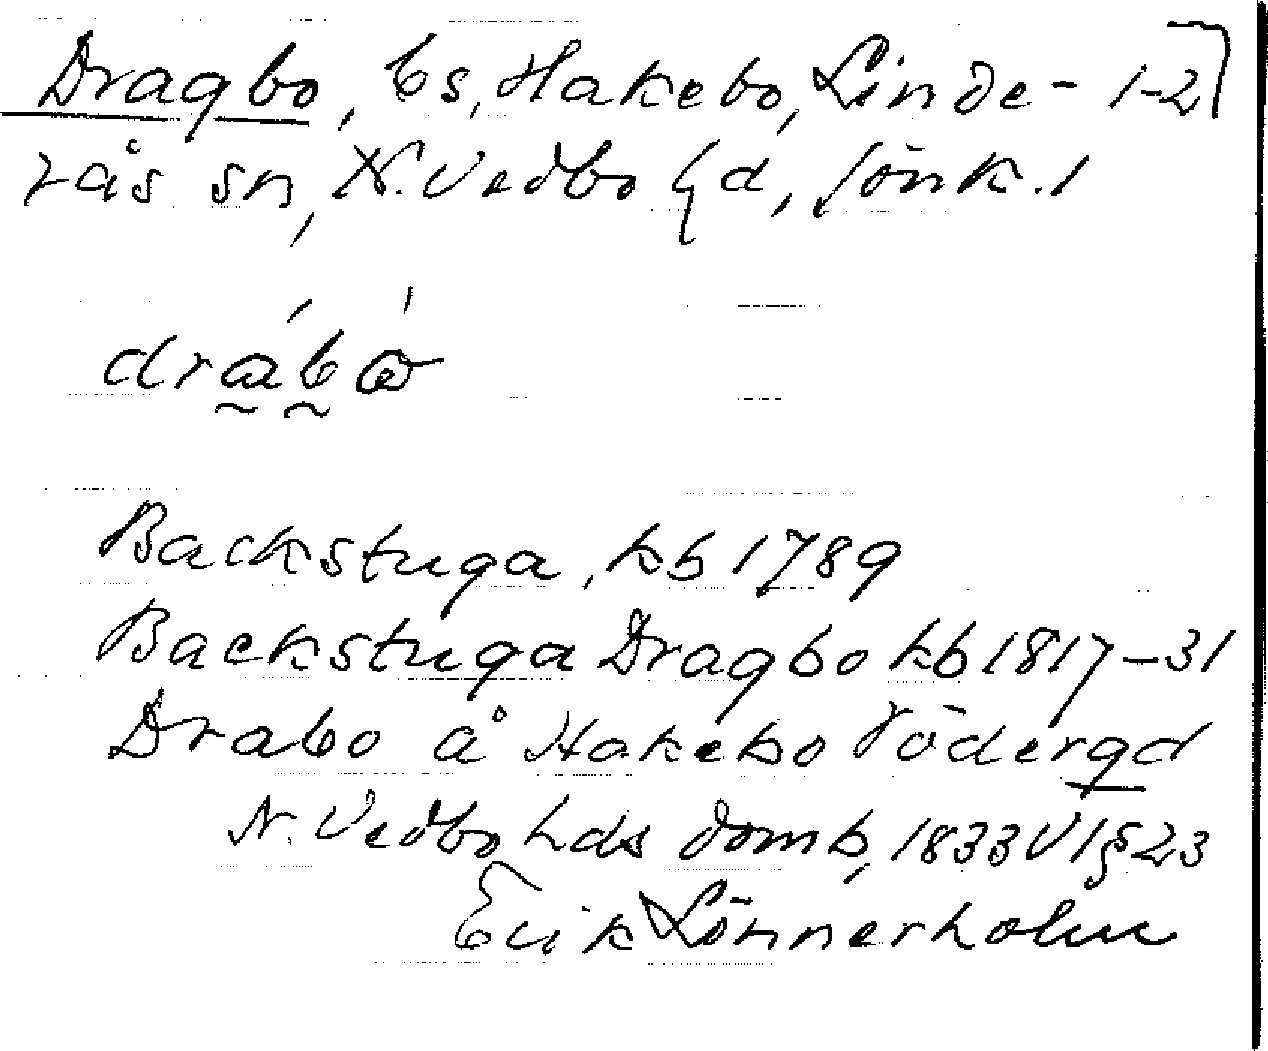 Dragbo, bs, Hakebo, Linde- 1-2
rås sn, N. Vedbo hd, Jönk. l
drábò
Backstuga, kb 1789
Backstuga Dragbo kb 1817-31
Drabo å Hakebo Södergd
N. Vedbo hds domb, 1833 V1§23
Erik Lönnerholm